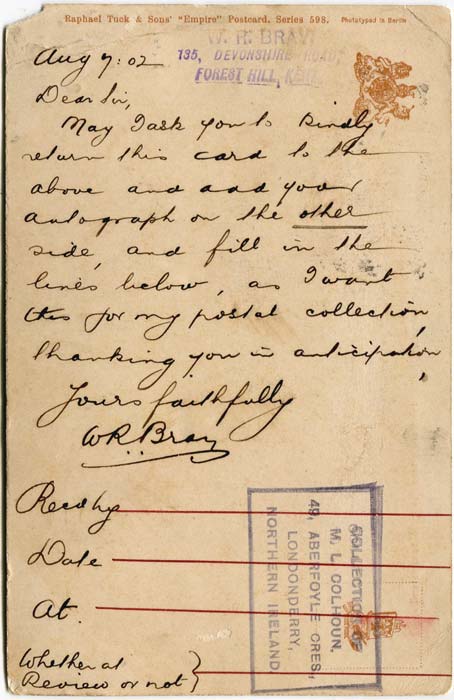 Raphael Tuck & Sons' "Empire" Postcard. Series 598.
Phototyped in Berlin
W. R. BRAY,
135, DEVONSHIRE ROAD,
FOREST HILL, KENT.
Aug 7: 02
Dear Sir,
May I ask you to kindly
return this card to the
above and add your
autograph on the other
side, and fill in the
lines below, as I want
this for my postal collection,
thanking you in anticipation,
Yours faithfully
W.R. Bray
Recd by
Date
At.
Whether at
Review or not
COLLECTION OF
M. L. COLHOUN.
49, ABERFOYLE CRES.,
LONDONDERRY,
NORTHERN IRELAND